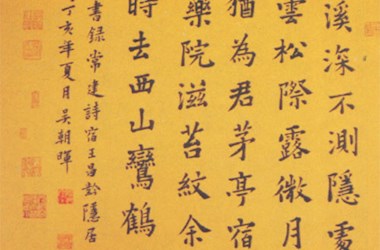 溪深不測隱處
雲松際露微月
猶為君茅亭宿
藥院滋苔紋余
時去西山鸞鶴
書録常建詩宿王昌齡隱居
丁亥年夏月吳朝暉